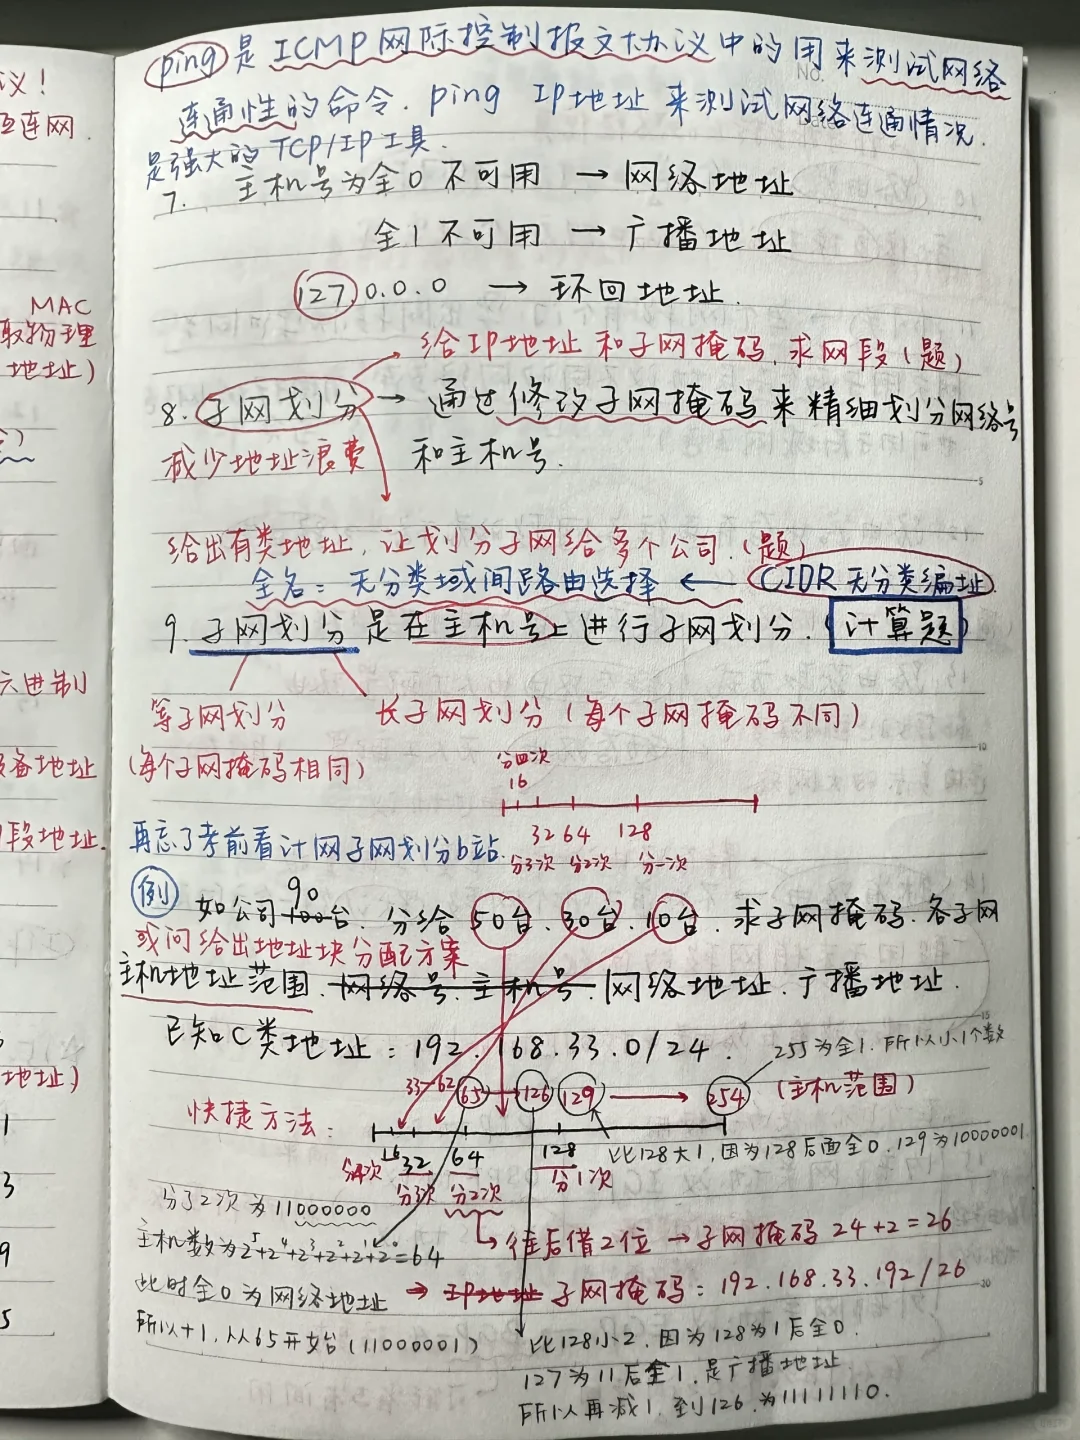 ping是ICMP网际控制报文协议中的用来测试网络
连通性的命令. ping IP地址 来测试网络连通情况.
是强大的TCP/IP工具.
7. 主机号为全0不可用 → 网络地址
全1不可用 → 广播地址
127.0.0.0 → 环回地址.
给IP地址和子网掩码,求网段(题)
8. 子网划分 → 通过修改子网掩码来精细划分网络号
减少地址浪费 和主机号.
给出有类地址,让划分子网给多个公司.(题)
全名:无分类域间路由选择 ← CIDR无分类编址
9. 子网划分是在主机号上进行子网划分.(计算题)
等子网划分 长子网划分(每个子网掩码不同)
(每个子网掩码相同)
分四次
16
32 64 128
分3次 分2次 分一次
再忘了考前看计网子网划分b站.
例 如公司100台 90. 分给50台.30台.10台. 求子网掩码.各子网
或问给出地址块分配方案
主机地址范围.网络号.主机号.网络地址.广播地址.
已知C类地址:192.168.33.0/24.
255为全1.所以小1个数
33-62 65 126 129 → 254 (主机范围)
快捷方法:
16 32 64 128
分4次 分3次 分2次 分1次
比128大1,因为128后面全0.129为10000001
分了2次为11000000
往后借2位 → 子网掩码24+2=26
主机数为2⁵+2⁴+2³+2²+2¹+2⁰=64
此时全0为网络地址 → IP地址 子网掩码:192.168.33.192/26
所以+1,从65开始(11000001)
比128小2.因为128为1后全0.
127为11后全1.是广播地址
所以再减1.到126.为11111110.
MAC
取物理
地址)
议!
互连网.
六进制
设备地址
段地址.
地址)
1
3
9
5